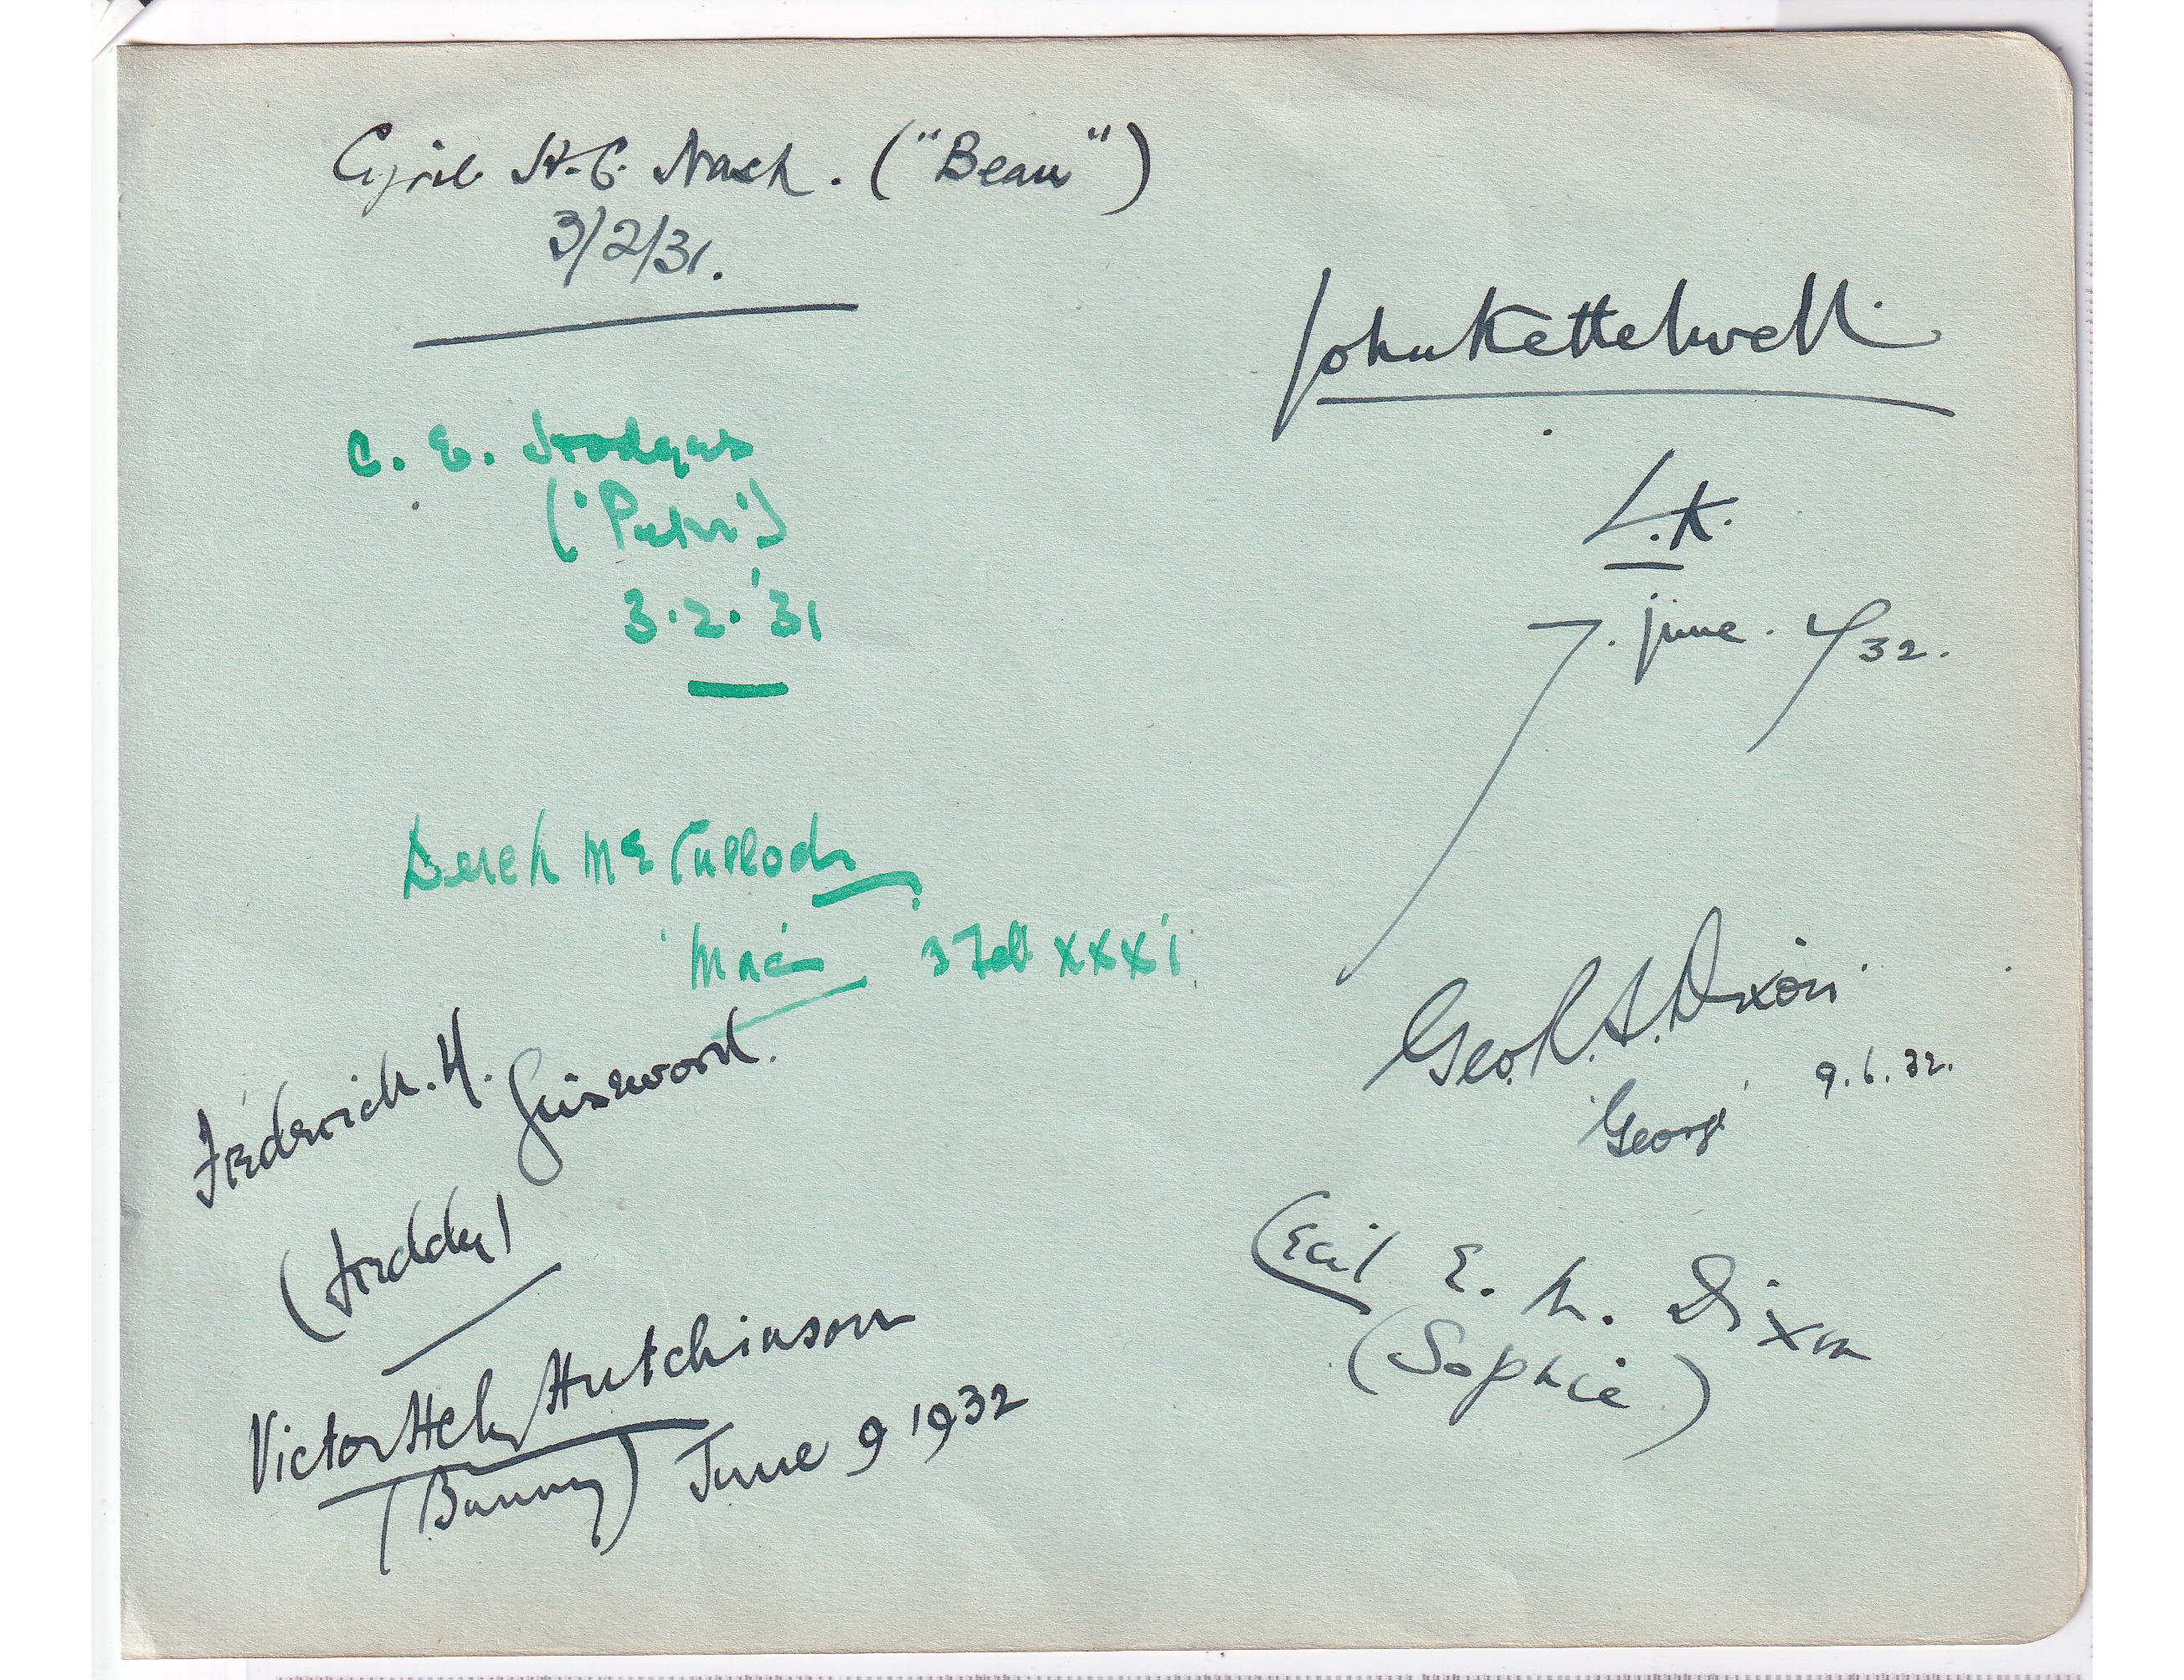 Cyril H.C. Nash. ("Beau")
3/2/31.
C. E. Hodges
('Peter')
3.2.'31
Derek McCulloch
'Mac' 3 Feb xxxi
Frederick. H. Grisewood.
(Freddy)
Victor Hely Hutchinson
(Bunny) June 9 1932
John Kettelwell.
L.K.
7. June. 32.
Geo. R. S. Dixon.
'George' 9.6.32.
Cecil E. M. Dixon
(Sophie)